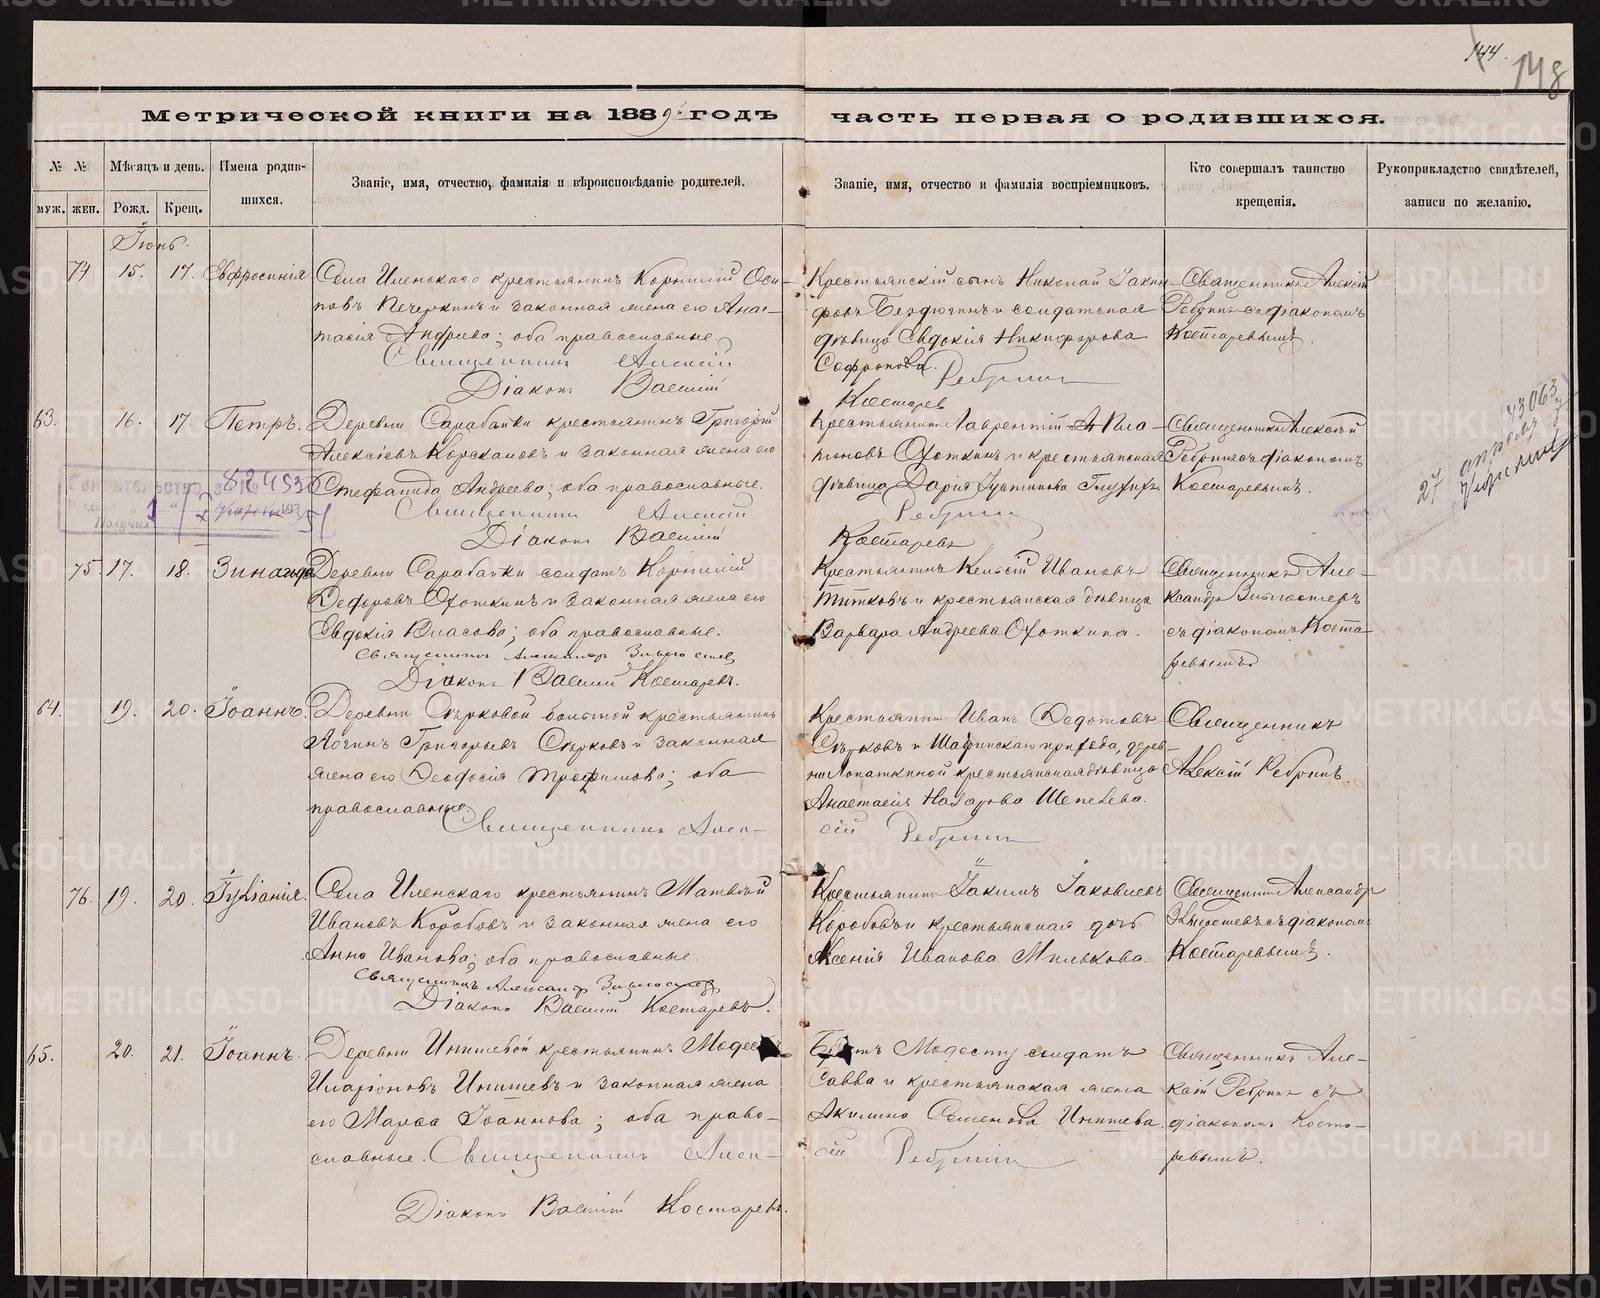 144.
148
Метрической книги на 1889 годъ
часть первая о родившихся.
№ №
Мѣсяцъ и день.
Имена родив-
шихся.
Званіе, имя, отчество, фамилія и вѣроисповѣданіе родителей.
Званіе, имя, отчество и фамилія воспріемниковъ.
Кто совершалъ таинство
крещенія.
Рукоприкладство свидѣтелей,
записи по желанію.
муж. жен. Рожд. Крещ.
Іюнь.
74 15. 17. Евфросинія
Села Иленскаго крестьянинъ Корнилій Оси-
повъ Печеркинъ и законная жена его Анас-
тасія Андреева; оба православные
Священникъ Алексій
Діаконъ Василій
Крестьянскій сынъ Николай
фовъ и солдатская
дѣвица Евдокія Никифорова
Софронова. Ребринъ
Костарев
Священникъ Алексій
Ребринъ съ діакономъ
Костаревымъ.
63. 16. 17. Петръ.
Деревни Сарабайки крестьянинъ Григорій
Алексіевъ и законная жена его
Стефанида Андреева; оба православные.
Священникъ Алексій
Діаконъ Василій
Крестьянинъ Лаврентій Пла-
тоновъ Охоткинъ и крестьянская
дѣвица Дарія
Ребринъ
Костаревъ
Священникъ Алексій
Ребринъ съ діакономъ
Костаревымъ.
Свидѣтельство за №
82453
Получил
43063
27 апреля
75 17. 18. Зинаида
Деревни Сарабайки солдатъ Корнилій
Ѳедоровъ Охоткинъ и законная жена его
Евдокія Власова; оба православные.
Священникъ Александръ
Діаконъ Василій Костаревъ.
Крестьянинъ Иванов
Титковъ и крестьянская дѣвица
Варвара Андреева Охоткина.
Священникъ Але-
ксандръ
съ діакономъ Коста-
ревымъ
64. 19. 20. Іоаннъ.
Деревни Сѣрковой большой крестьянинъ
Логинъ Григорьевъ Сѣрковъ и законная
жена его Ѳеодосія Трофимова; оба
православные.
Священникъ Алек-
Крестьянинъ Иванъ Ѳедотовъ
Сѣрковъ и прихода, дерев-
ни Лопаткиной крестьянская дѣвица
Анастасія Назарова Шепелева.
сій Ребринъ
Священникъ
Алексій Ребринъ.
76. 19. 20. Іуліанія.
Села Иленскаго крестьянинъ Матвѣй
Ивановъ Коробовъ и законная жена его
Анна Иванова; оба православные.
Священникъ Александръ
Діаконъ Василій Костаревъ.
Крестьянинъ Іакимъ Іаковлевъ
Коробовъ и крестьянская дочь
Ксенія Иванова Милькова.
Священникъ Александръ
съ діакономъ
Костаревымъ.
65. 20. 21. Іоаннъ.
Деревни Инишевой крестьянинъ Модестъ
Иларіоновъ Инишевъ и законная жена
его Марѳа Іоаннова; оба право-
славные. Священникъ Алек-
Діаконъ Василій Костаревъ.
Братъ Модесту солдатъ
Савва и крестьянская жена
Акилина Семенова Инишева.
сій Ребринъ
Священникъ Але-
ксій Ребринъ съ
діакономъ Коста-
ревымъ.
METRIKI.GASO-URAL.RU